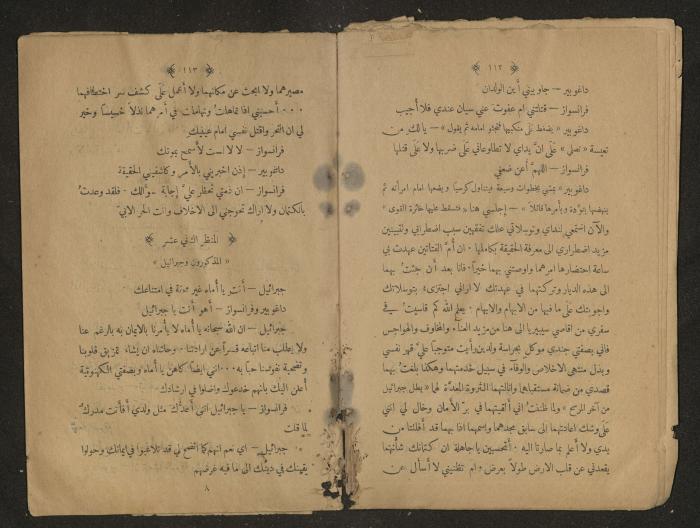 ١١٢
داغوبير – جاوبيني أين الولدان
فرانسواز – قتلتني ام عفوت عني سيان عندي فلا أجيب
داغوبير «يضغط على منكبيها فتجثو امامه ثم يقول» – يالك من
تعيسة «تصلي» على انّ يداي لا تطاوعاني على ضربها ولا على قتلها
فرانسواز – اللهمّ أعن ضعفي
داغوبير «يمشي بخطوات وسيعة فيتناول كرسيًا ويضعها امام امرأته ثم
ينهضها بتؤدة ويأمرها قائلا» – إجلسي هنا «فتسقط عليها خائرة القوى»
والآن استمعي لندائي وتوسلاتي علك تفقهين سبب اضطرابي وتقبنين
مزيد اضطراري الى معرفة الحقيقة بكاملها . ان أمّ الفتاتين عهدت بي
ساعة احتضارها امرهما واوصتني بهما خيراً . فانا بعد أن جئت بهما
الى هذه الديار وتركتهما في عهدتك لا اراني اجتزى، بتوسلاتك
واجوبتك على ما فيها من الابهام والايهام . يعلم الله كم قاسيت في
سفري من اقاصي سيبيريا الى هنا من مزيد العناء والمخاوف والهواجس
فاني بصفتي جندي موكل بحراسة ولدين رأيت متوجبًا عليّ قهر نفسي
وبذل منتهى الاخلاص والوفاء في سبيل خدمتهما وهكذا بلغت بهما
قصدي من ضمانة مستقبلها وانالتهما الثروة المعدّة لهما «يطل جبرائيل
من آخر المرسح» ولما ظننت اني ألقيتهما في برّ الأمان وخال لي انني
على وشك اعادتهما الى سابق مجدهما واسمهما اذا بهما قد أفلتتا من
يدي ولا أعلم بما صارتا اليه . أتحسبين ياجاهلة ان كتمانك شأنهما
يقعدني عن قلب الارض طولاً بعرض . ام تظنيني لا أسأل عن
١١٣
مصيرهما ولا ابحث عن مكانهما ولا أعمل على كشف سر اختفائهما
٠٠٠ أحسبيني اذا تماهلت وتهاملت في أمرهما نذلاً خسيسًا وخير
لي ان انتحر واقتل نفسي امام عينيك
فرانسواز – لا لا لست لأسمح بموتك
داغوبير – إذن اخبريني بالأمر وكاشفيني الحقيقة
فرانسواز – ان ذمتي تحظر عليّ إجابة سؤالك . فلقد وعدت
بالكتمان ولا اراك تحوجني الى الاخلاف وانت الحر الابيّ
المنظر الثاني عشر
«المذكورون وجبرائيل»
جبرائيل – أنت يا أماه غير في امتناعك
داغوبير وفرانسواز – أهو أنت يا جبرائيل
جبرائيل – ان الله سبحانه يا أماه لا يأمرنا بالايمان به بالرغم عنا
ولا يطلب منا اتباعه قسراً عن ارادتنا . وحاشاه ان يشاء تمزيق قلوبنا
وتضحية نفوسنا حبًا به ٠٠٠ انني ايضاً كاهن يا أماه وبصفتي الكهنوتية
أعلن اليك بانهم خدعوك واضلوا في ارشادك
فرانسواز – يا جبرائيل انني أعدّك مثل ولدي أفأنت مدرك
لما قلت
جبرائيل – اي نعم انهم كما اتضح لي قد تلاعبوا في ايمانك وحولوا
يقينك في دينك الى ما فيه غرضهم
٨